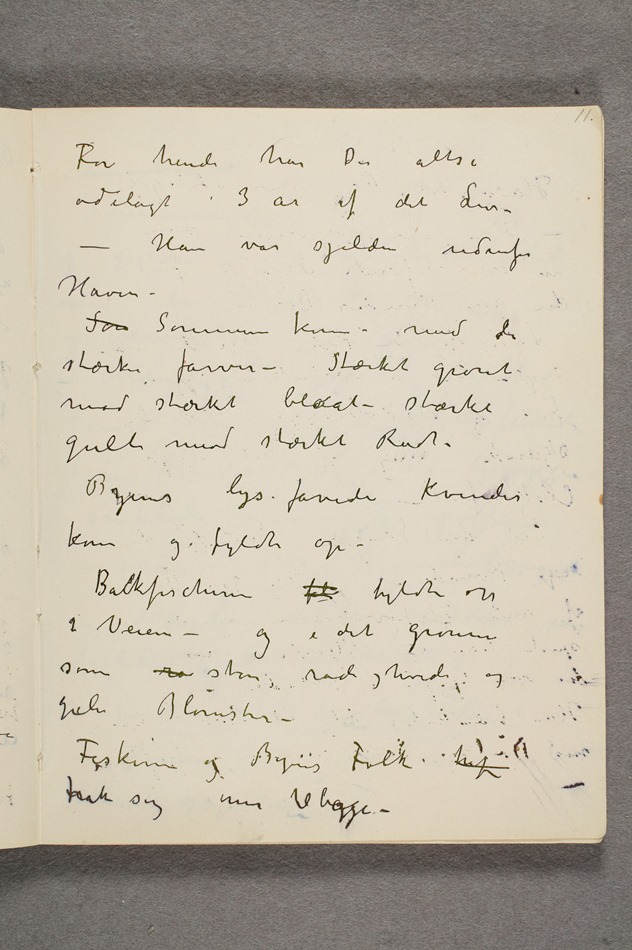 11.
For hende har De altså
ødelagt 3 år af det Liv–
– Han var sjelden udenfor
Haven–
Som Sommeren kom – med de
stærke farver – Stærkt grønt
mod stærkt blåat – stærke
gulte mod stærkt Rødt –
Byens lys farvede Kvinder
kom og fyldte op –
Backfischerne fyldte op
i Veien – og i det grønne
som store, røde, hvide og
gule Blomster –
Fiskerne og Byens Folk
trak sig mer tilbage –